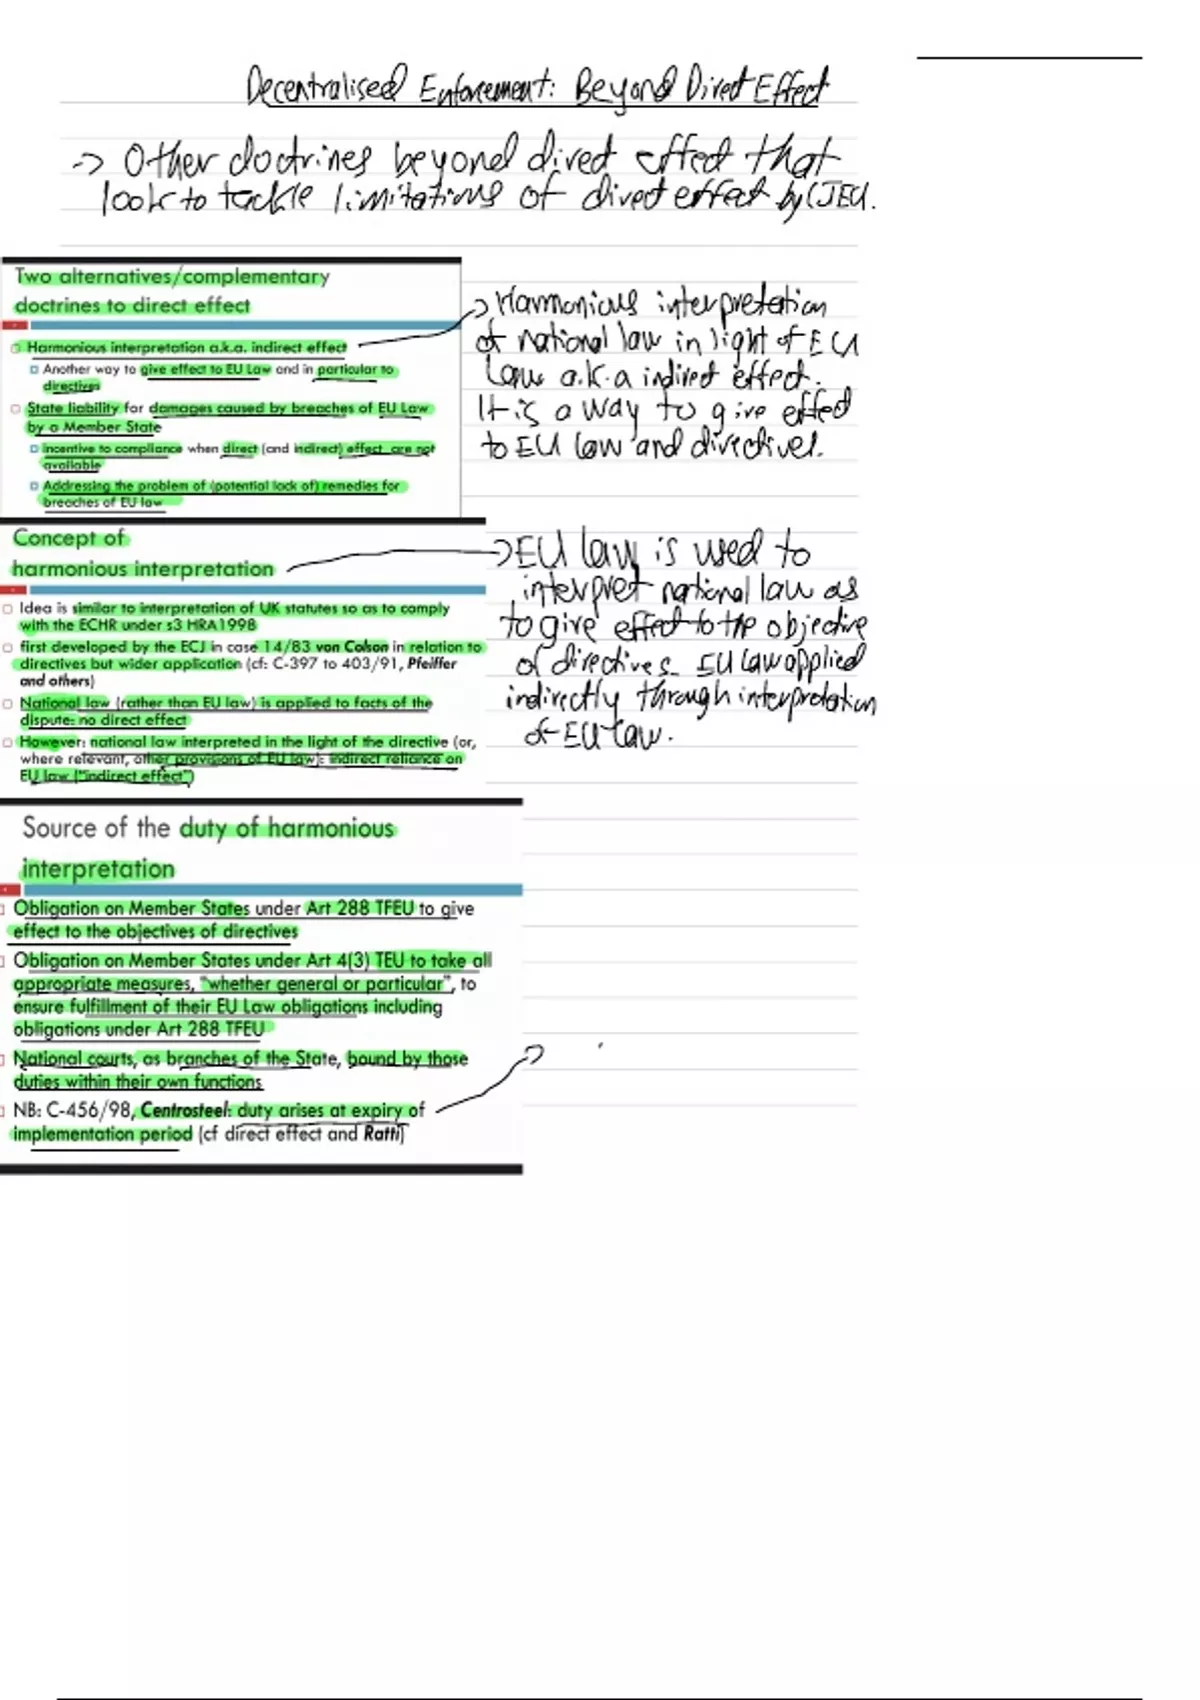 Decentralised Enforcement: Beyond Direct Effect
-> Other doctrines beyond direct effect that
look to tackle limitations of direct effect by CJEU.
Two alternatives/complementary
doctrines to direct effect
Harmonious interpretation a.k.a. indirect effect
Another way to give effect to EU Law and in particular to
directives
State liability for damages caused by breaches of EU Law
by a Member State
incentive to compliance when direct (and indirect) effect are not
available
Addressing the problem of (potential lack of) remedies for
breaches of EU law
-> Harmonious interpretation
of national law in light of EU
Law a.k.a indirect effect.
It is a way to give effect
to EU law and directives.
Concept of
harmonious interpretation
Idea is similar to interpretation of UK statutes so as to comply
with the ECHR under s3 HRA1998
first developed by the ECJ in case 14/83 von Colson in relation to
directives but wider application (cf: C-397 to 403/91, Pfeiffer
and others)
National law (rather than EU law) is applied to facts of the
dispute: no direct effect
However: national law interpreted in the light of the directive (or,
where relevant, other provisions of EU law): indirect reliance on
EU law ("indirect effect")
-> EU law is used to
interpret national law as
to give effect to the objective
of directives. EU law applied
indirectly through interpretation
of EU law.
Source of the duty of harmonious
interpretation
Obligation on Member States under Art 288 TFEU to give
effect to the objectives of directives
Obligation on Member States under Art 4(3) TEU to take all
appropriate measures, "whether general or particular", to
ensure fulfillment of their EU Law obligations including
obligations under Art 288 TFEU
National courts, as branches of the State, bound by those
duties within their own functions
NB: C-456/98, Centrosteel: duty arises at expiry of
implementation period (cf direct effect and Ratti)